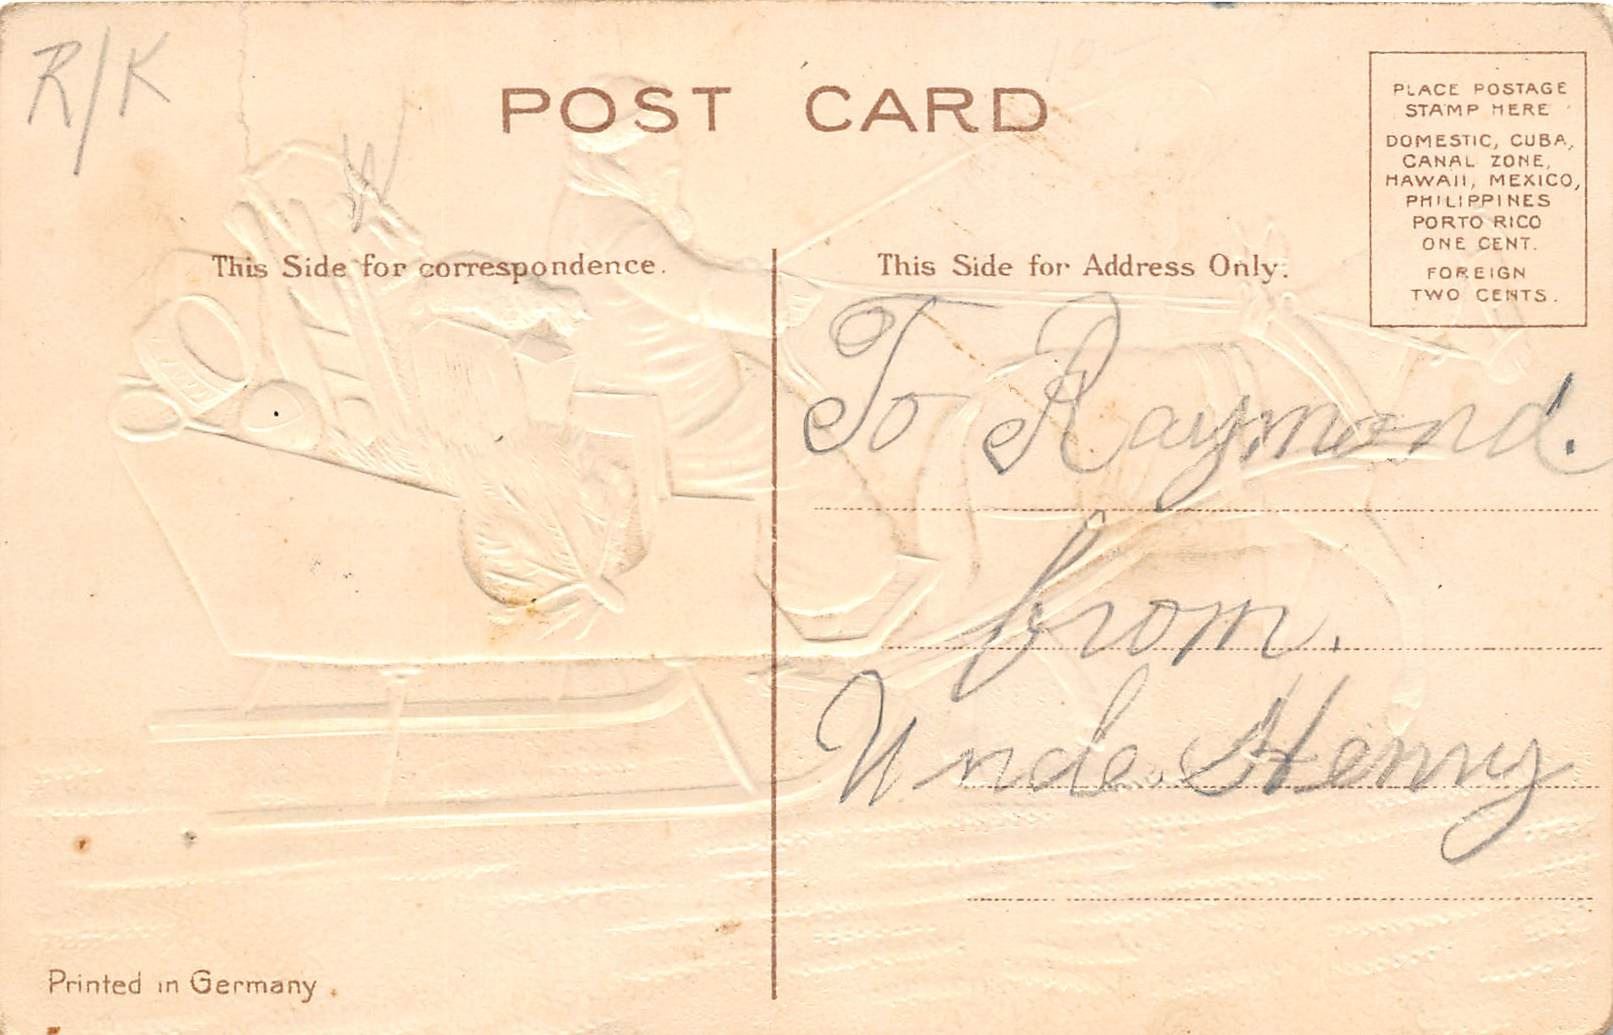 R/K
POST CARD
PLACE POSTAGE
STAMP HERE
DOMESTIC, CUBA,
CANAL ZONE,
HAWAII, MEXICO,
PHILIPPINES
PORTO RICO
ONE CENT.
FOREIGN
TWO CENTS.
This Side for correspondence.
This Side for Address Only.
To Raymond.
from.
Uncle Henry
Printed in Germany.